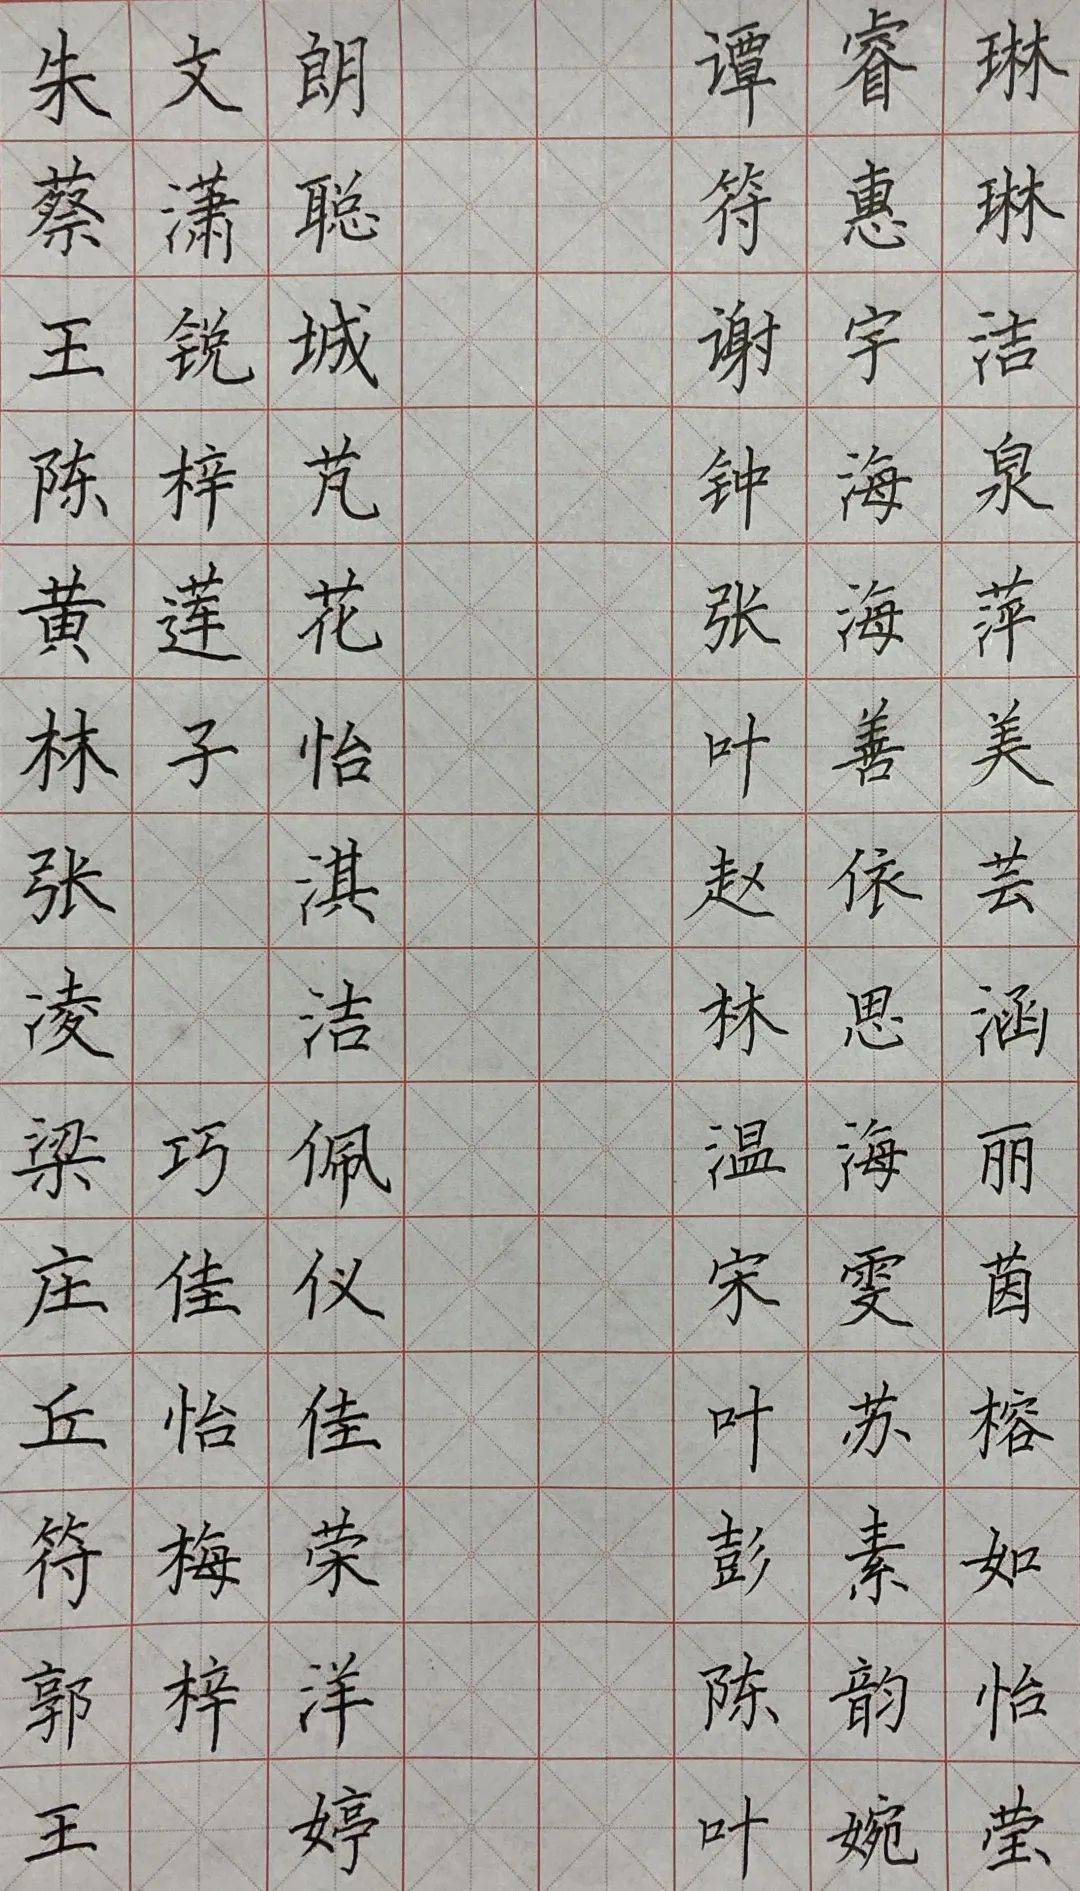 朱文朗 谭睿琳
蔡潇聪 符惠琳
王锐城 谢宇洁
陈梓芃 钟海泉
黄莲花 张海萍
林子怡 叶善美
张淇 赵依芸
凌洁 林思涵
梁巧佩 温海丽
庄佳仪 宋雯茵
丘怡佳 叶苏榕
符梅荣 彭素如
郭梓洋 陈韵怡
王婷 叶婉莹